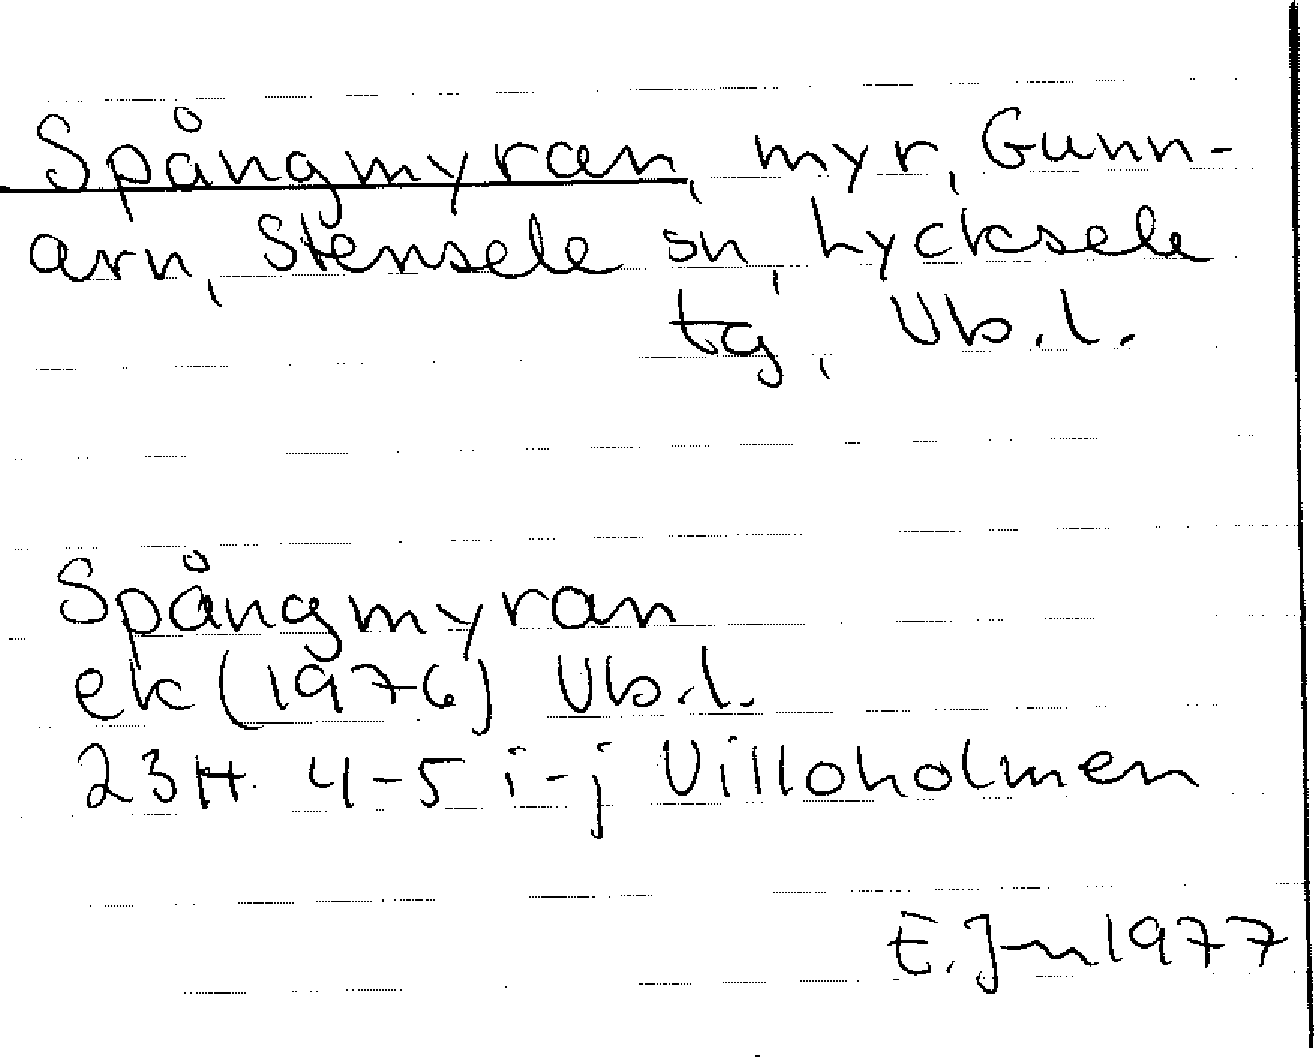 Spångmyran, myr, Gunn-
arn, Stensele sn, Lycksele
tg, Vb.l.
Spångmyran
ek (1976) Vb.l.
23H 4-5 i-j Villoholmen
E. Jn 1977